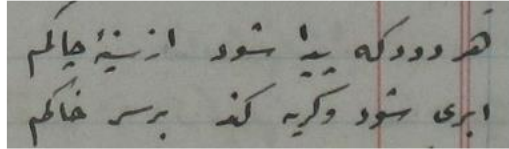 هر دود که پیدا شود از سینهٔ چاکم
ابری شود و گریه کند بر سر خاکم